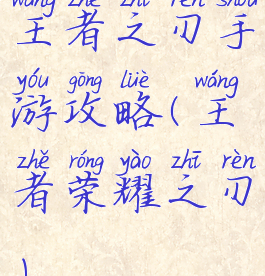 wáng zhě zhī rèn shǒu
王者之刃手
yóu gōng lüè wáng
游攻略(王
zhě róng yào zhī rèn
者荣耀之刃
)